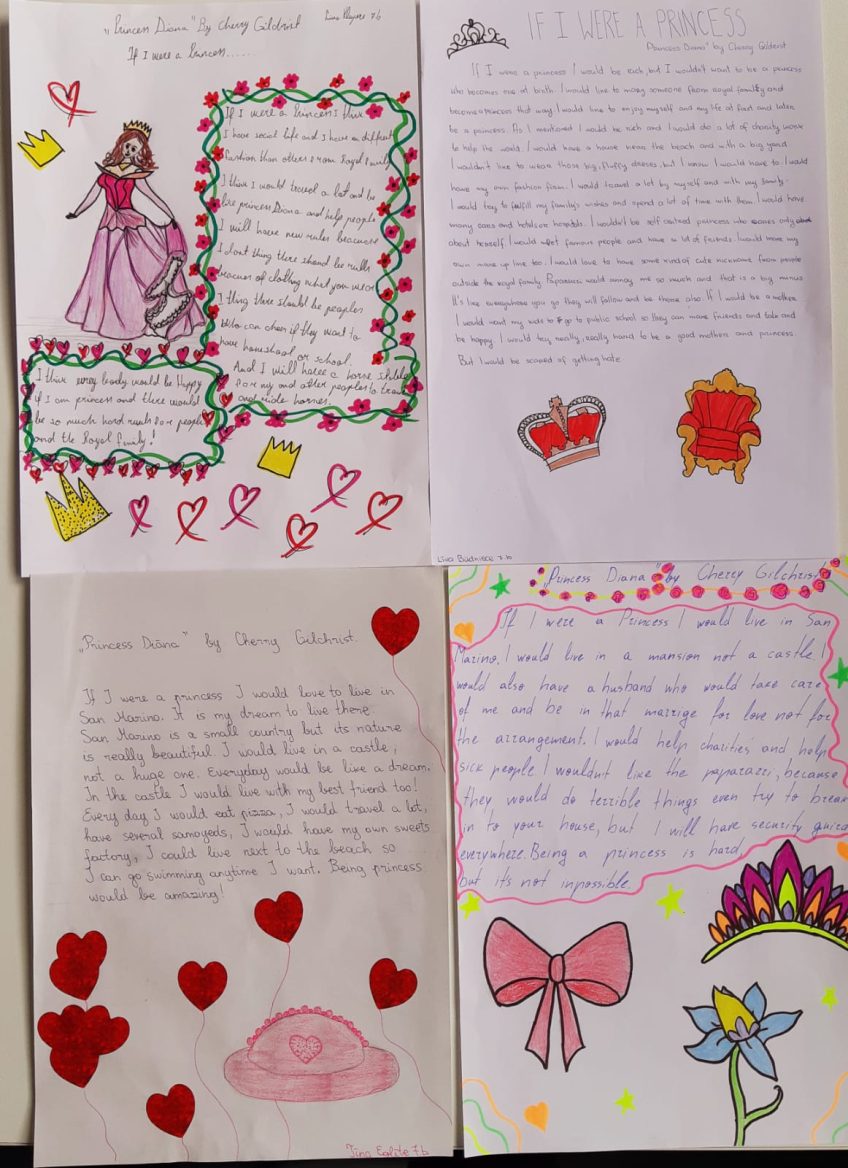 „Princess Diana" By Cherry Gilchrist
7.b
If I were a Princess......
If I were a Princess I think
I have social life and I have an different
fashion than others from Royal Family
I think I would travel a lot and be
like princess Diana and help people
I will have new rules because
I dont thing there should be rulls
because of clothing what you wear
I thing there should be peoples
who can chose if they want to
have homeshool or school.
And I will have a horse stable
for my and other peoples to
and ride horses.
I think every body would be Happy
if I am princess and there would
be so much hard rules for people
and the Royal family!
IF I WERE A PRINCESS
„Princess Diana" by Cherry Gilchrist
If I were a princess I would be rich, but I wouldn't want to be a princess
who becomes one at birth. I would like to marry someone from royal family and
become a princess that way. I would like to enjoy myself and my life at first and later
be a princess. As I mentioned I would be rich and I would do a lot of charity work
to help the world. I would have a house near the beach and with a big yard.
I wouldn't like to wear those big, fluffy dresses, but I know I would have to. I would
have my own fashion firm. I would travel a lot by myself and with my family.
I would try to fulfill my family's wishes and spend a lot of time with them. I would have
many cars and hotels or hospitals. I wouldn't be self centred princess who cares only
about herself. I would meet famous people and have a lot of friends. I would have my
own make up line too. I would love to have some kind of cute nickname from people
outside the royal family. Paparazzi would annoy me so much and that is a big minus.
It's like everywhere you go they will follow and be there also. If I would be a mother
I would want my kids to go to public school so they can make friends and
be happy. I would try really, really hard to be a good mother and princess.
But I would be scared of getting hate
Līva Budniece 7.b
„Princess Diāna" by Cherry Gilchrist
If I were a princess I would love to live in
San Marino. It is my dream to live there.
San Marino is a small country but its nature
is really beautiful. I would live in a castle,
not a huge one. Everyday would be like a dream.
In the castle I would live with my best friend too!
Every day I would eat pizza, I would travel a lot,
have several samoyeds, I would have my own sweets
factory, I could live next to the beach so
I can go swimming anytime I want. Being princess
would be amazing!
7.b
„Princess Diana" by Cherry Gilchrist
If I were a Princess I would live in San
Marino. I would live in a mansion not a castle. I
would also have a husband who would take care
of me and be in that marrige for love not for
the arrangement. I would help charities and help
sick people I wouldn't like the paparazzi, because
they would do terrible things even try to break
in to your house, but I will have security guard
everywhere. Being a princess is hard,
but it's not inpossible.